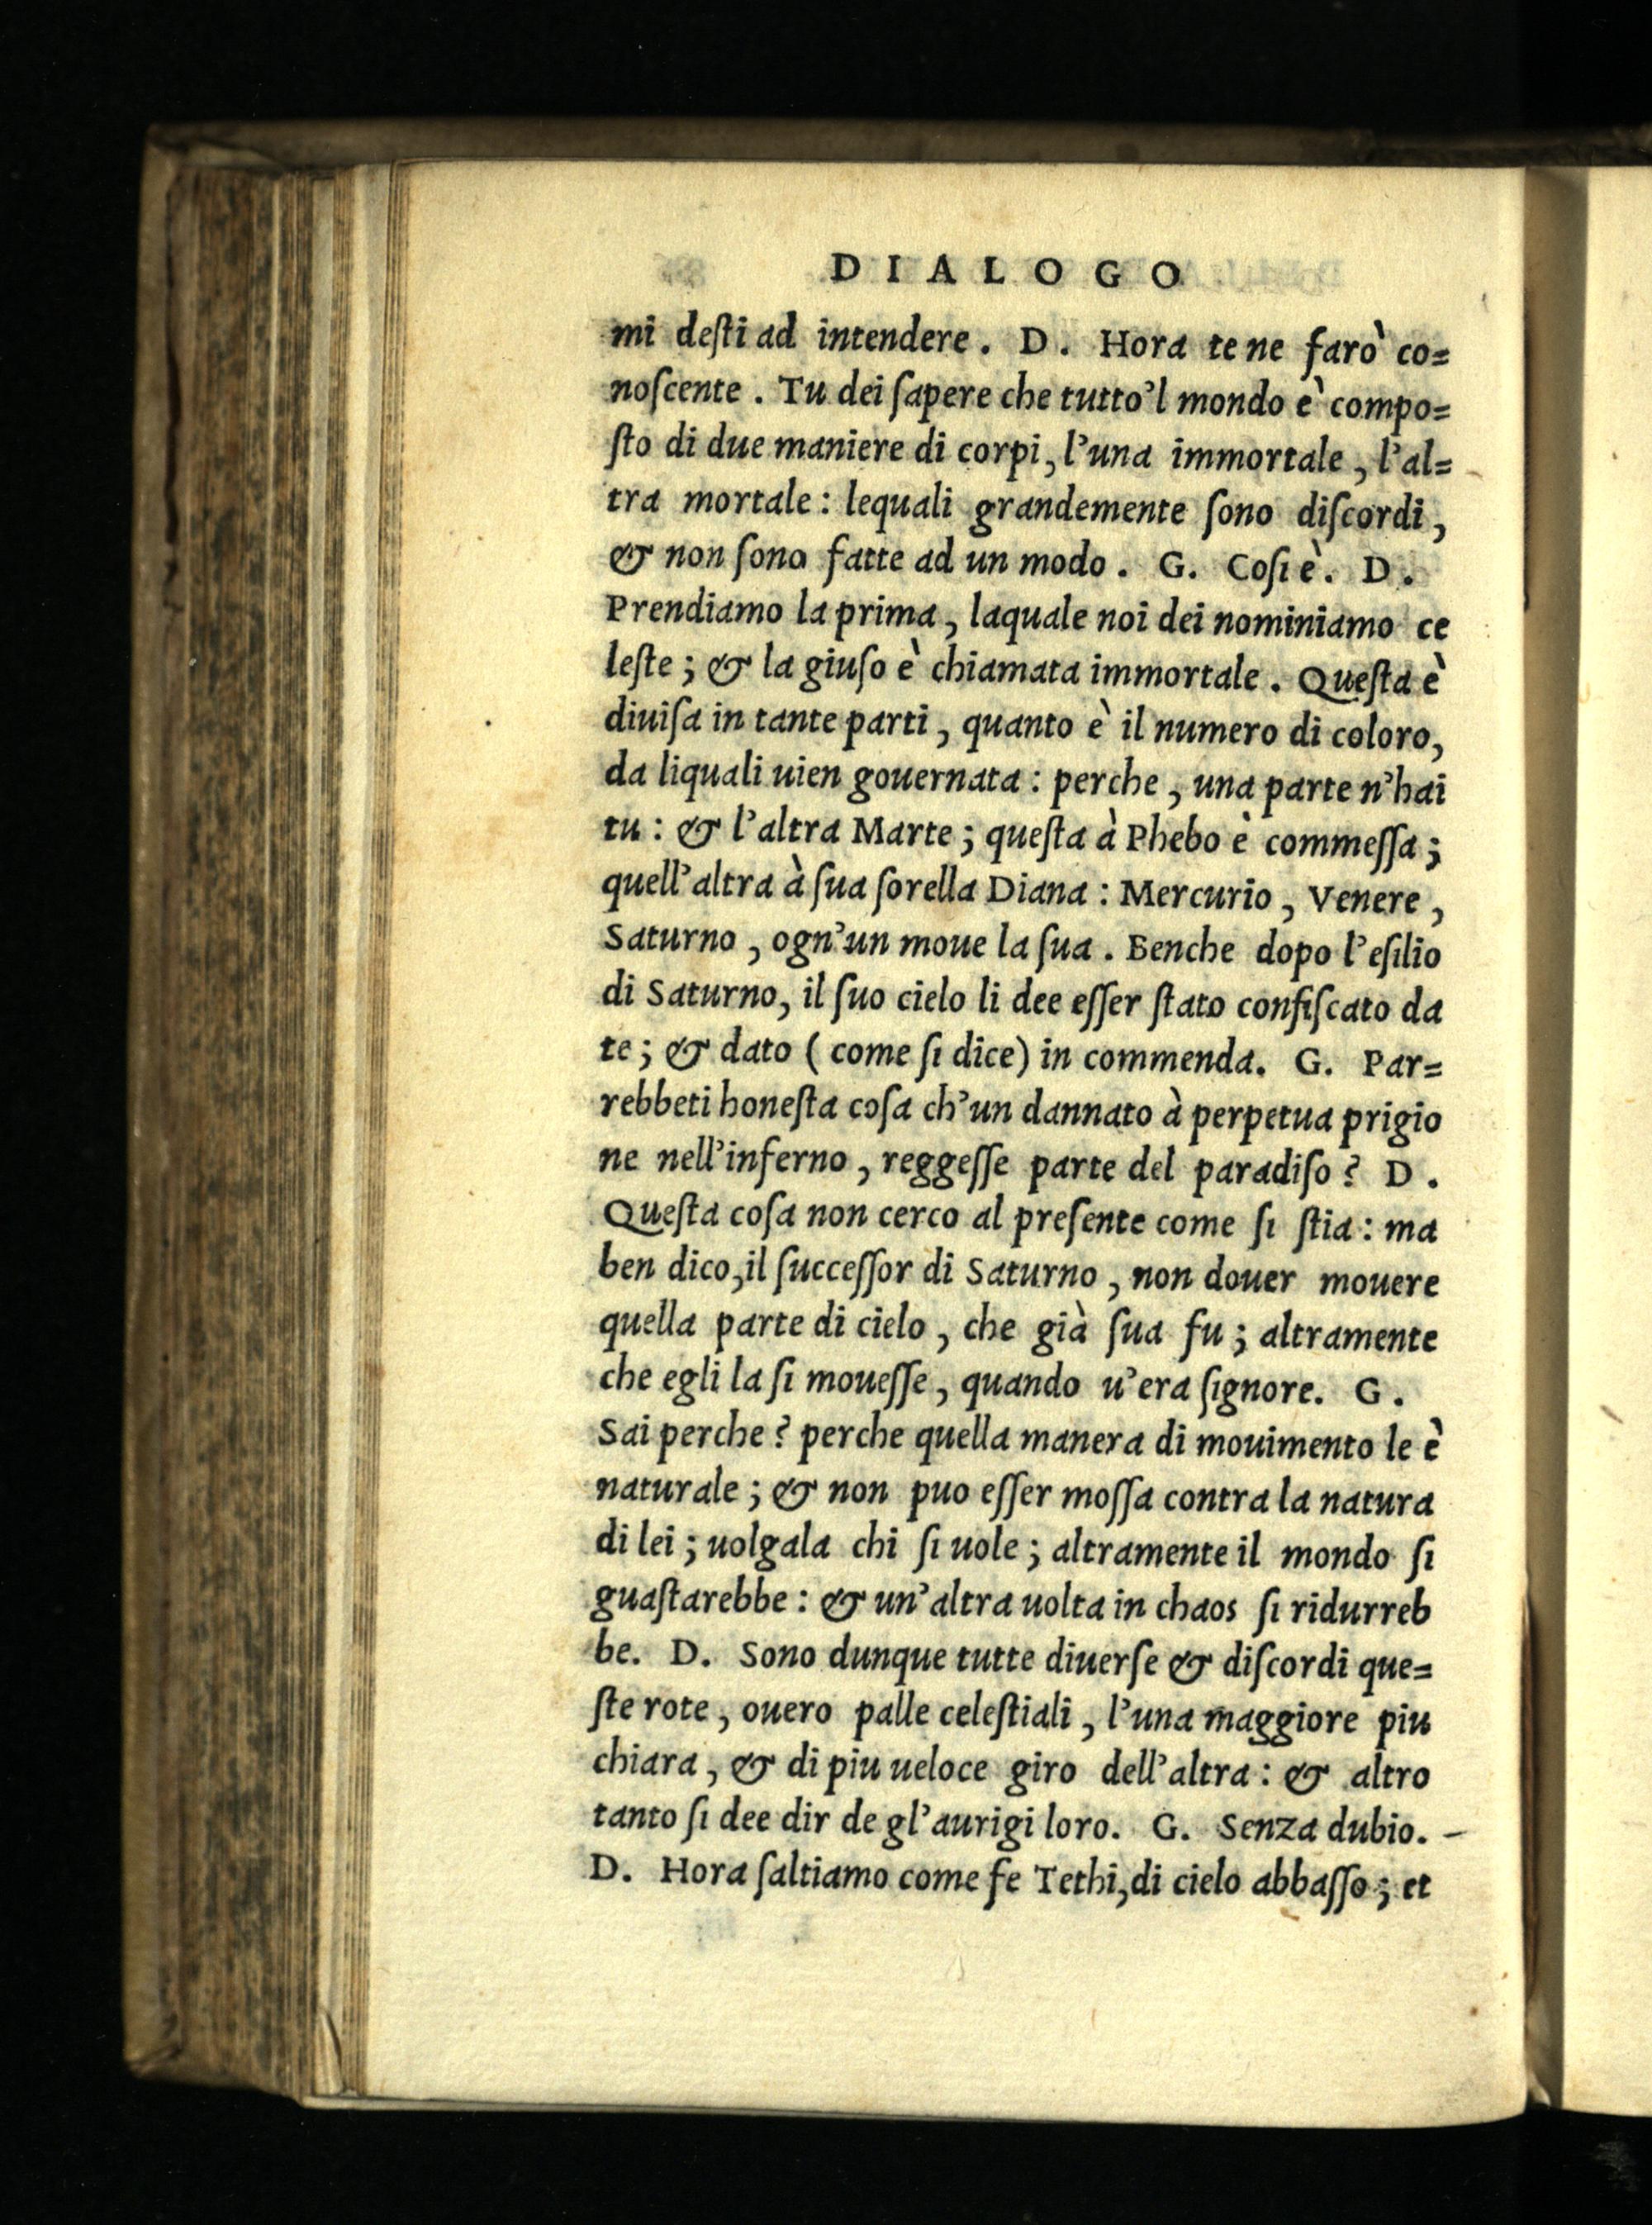 DIALOGO
mi deſti ad intendere. D. Hora te ne farò co=
noſcente. Tu dei ſapere che tutto'l mondo è compo=
ſto di due maniere di corpi, l'una immortale, l'al=
tra mortale: lequali grandemente ſono diſcordi,
& non ſono fatte ad un modo. G. Coſi è. D.
Prendiamo la prima, laquale noi dei nominiamo ce
leſte; & la giuſo è chiamata immortale. Queſta è
diuiſa in tante parti, quanto è il numero di coloro,
da liquali uien gouernata: perche, una parte n'hai
tu: & l'altra Marte; queſta à Phebo è commeſſa;
quell'altra à ſua ſorella Diana: Mercurio, Venere,
Saturno, ogn'un moue la ſua. Benche dopo l'eſilio
di Saturno, il ſuo cielo li dee eſſer ſtato confiſcato da
te; & dato (come ſi dice) in commenda. G. Par=
rebbeti honeſta coſa ch'un dannato à perpetua prigio
ne nell'inferno, reggeſſe parte del paradiſo? D.
Queſta coſa non cerco al preſente come ſi ſtia: ma
ben dico, il ſucceſſor di Saturno, non douer mouere
quella parte di cielo, che già ſua fu; altramente
che egli la ſi moueſſe, quando u'era ſignore. G.
Sai perche? perche quella manera di mouimento le è
naturale; & non puo eſſer moſſa contra la natura
di lei; uolgala chi ſi uole; altramente il mondo ſi
guaſtarebbe: & un'altra uolta in chaos ſi ridurreb
be. D. Sono dunque tutte diuerſe & diſcordi que=
ſte rote, ouero palle celeſtiali, l'una maggiore piu
chiara, & di piu ueloce giro dell'altra: & altro
tanto ſi dee dir de gl'aurigi loro. G. Senza dubio.
D. Hora ſaltiamo come fe Tethi, di cielo abbaſſo; et